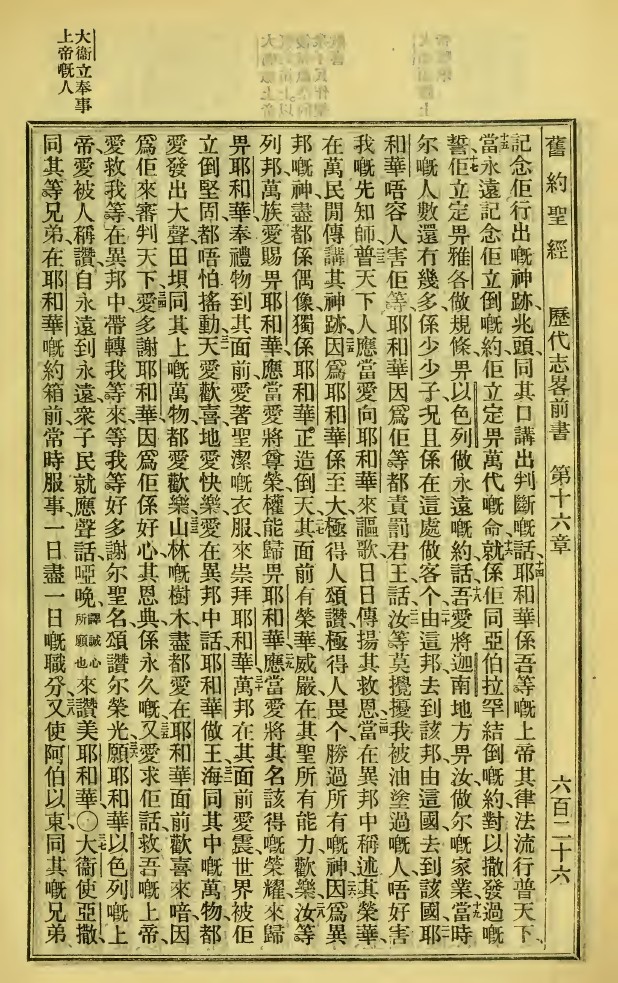 舊約聖經 歷代志畧前書 第十六章 六百二十六
記念佢行出嘅神跡、兆頭、同其口講出判斷嘅話、十四耶和華係吾等嘅上帝、其律法流行普天下、
十五當永遠記念佢立倒嘅約、佢立定畀萬代嘅命、十六就係佢同亞伯拉罕結倒嘅約、對以撒發過嘅
誓、十七佢立定畀雅各做規條、畀以色列做永遠嘅約、十八話、吾愛將迦南地方畀汝、做尔嘅家業、十九當時
尔嘅人數還有幾多、係少少子、况且係在這處做客、二十个由這邦去到該邦、由這國去到該國、二一耶
和華唔容人害佢等、耶和華因爲佢等都責罰君王、二二話、汝等莫攪擾我被油塗過嘅人、唔好害
我嘅先知師、二三普天下人、應當愛向耶和華來謳歌、日日傳揚其救恩、二四當在異邦中稱述其榮華、
在萬民閒傳講其神跡、二五因爲耶和華係至大、極得人頌讚、極得人畏、个勝過所有嘅神、二六因爲異
邦嘅神、盡都係偶像、獨係耶和華正造倒天、二七其面前有榮華威嚴、在其聖所有能力歡樂、二八汝等
列邦萬族、愛賜畀耶和華、應當愛將尊榮權能歸畀耶和華、二九應當愛將其名該得嘅榮耀來歸
畀耶和華、奉禮物到其面前、愛著聖潔嘅衣服來崇拜耶和華、三十萬邦在其面前愛震、世界被佢
立倒堅固、都唔怕搖動、三一天愛歡喜、地愛快樂、愛在異邦中話、耶和華做王、三二海同其中嘅萬物都
愛發出大聲、田垻同其上嘅萬物都愛歡樂、三三山林嘅樹木、盡都愛在耶和華面前歡喜來唱、因
爲佢來審判天下、三四愛多謝耶和華、因爲佢係好心、其恩典係永久嘅、三五又愛求佢話、救吾嘅上帝、
愛救我等、在異邦中帶轉我等來、等我等好多謝尔聖名、頌讚尔榮光、三六願耶和華以色列嘅上
帝、愛被人稱讚、自永遠到永遠、衆子民就應聲話、啞𫩛、譯誠心所願也來讚美耶和華、○三七大衞使亞撒、
同其等兄弟、在耶和華嘅約箱前、常時服事、一日盡一日嘅職分、三八又使阿伯以東、同其嘅兄弟
大衞立奉事
上帝嘅人